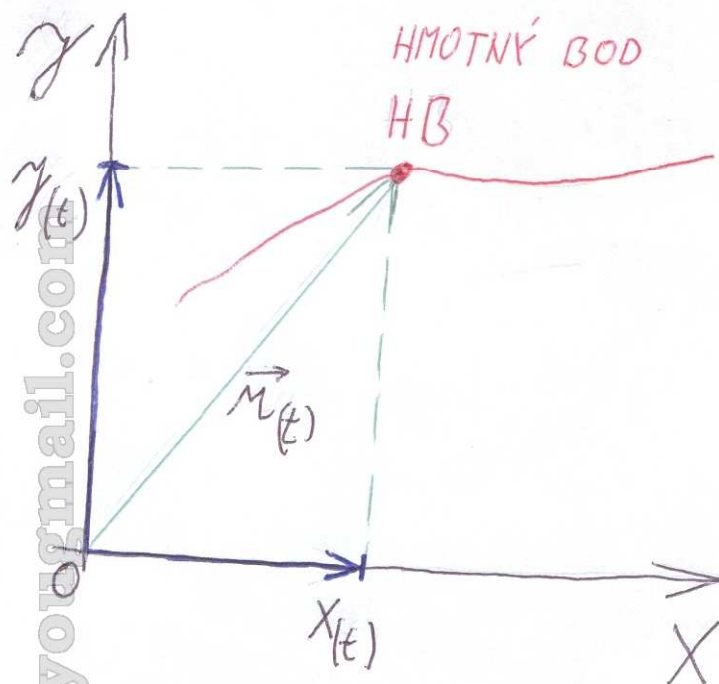 y
HMOTNÝ BOD
HB
y(t)
r(t)
O
x(t)
X
yougmail.com